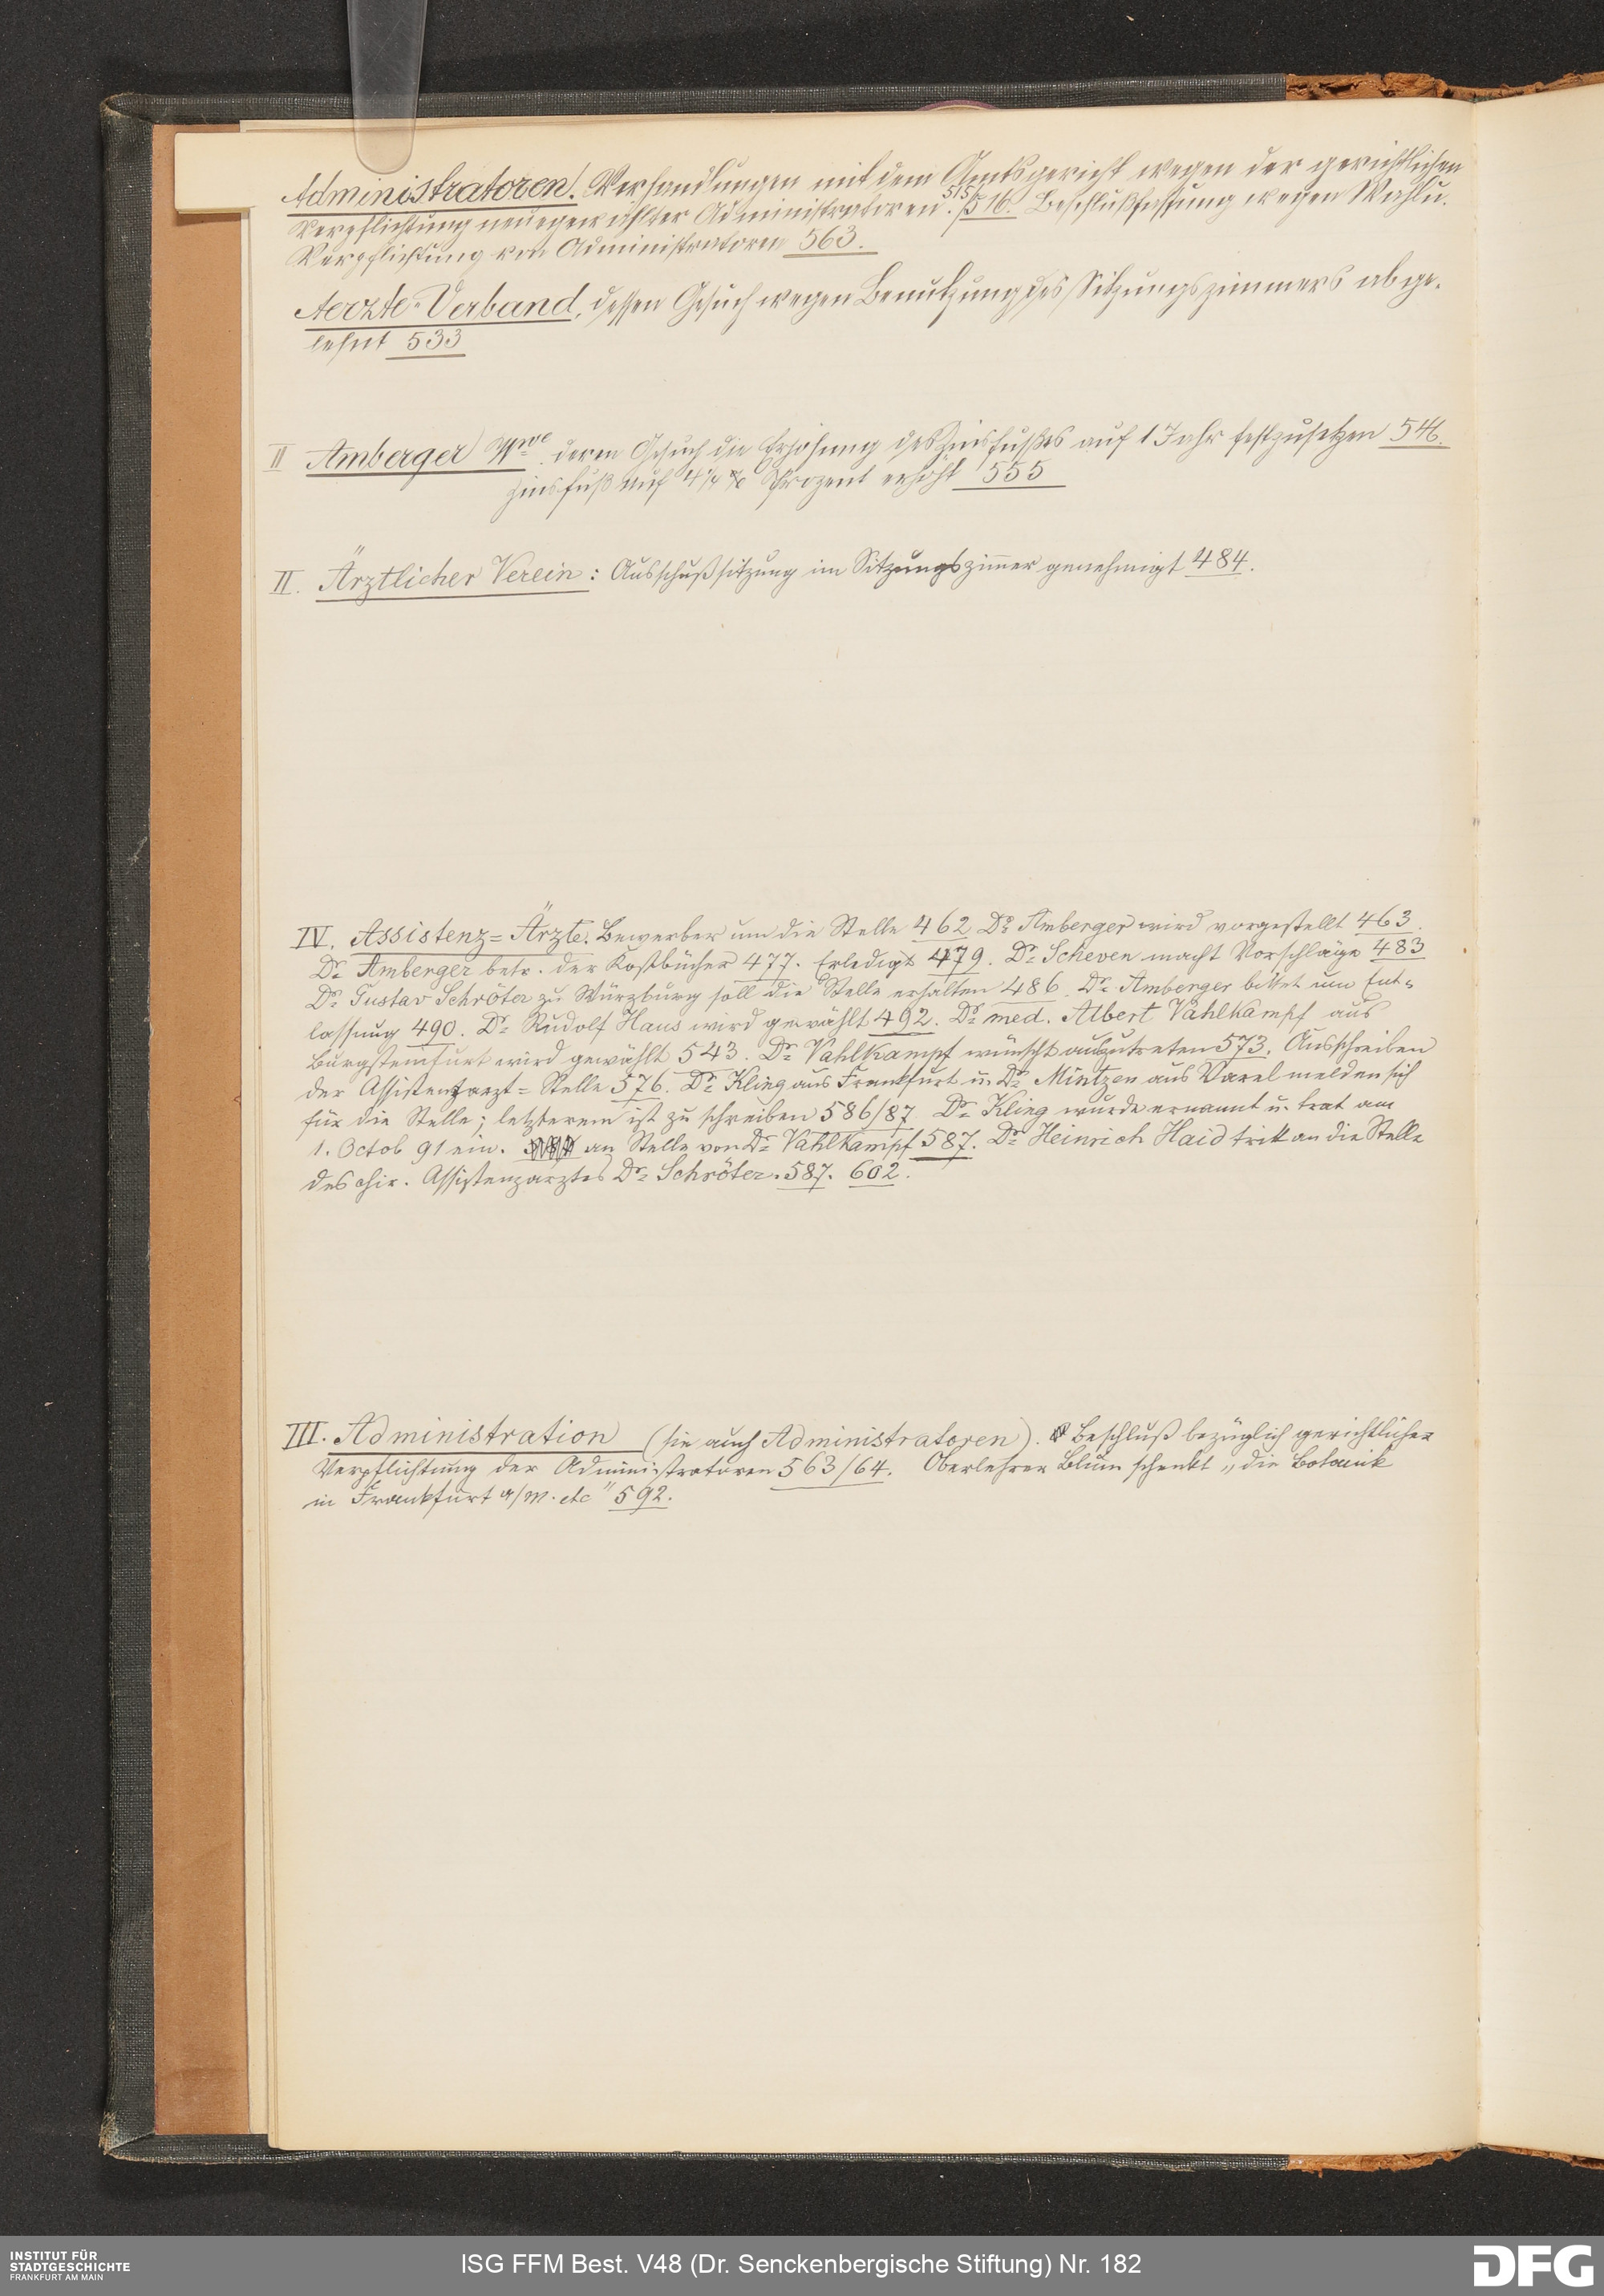 Administratoren! Verhandlungen mit dem Amtsgericht wegen der gerichtlichen
Verpflichtung neuerwählter Administratoren. 515/516. Beschlußfassung wegen Wahl u.
Verpflichtung von Administratoren 563.
Aerzte-Verband, dessen Gesuch wegen Benutzung des Sitzungszimmers abge-
lehnt 533
II Amberger Wwe. deren Gesuch die Erhöhung des Zinsfußes auf 1 Jahr festzusetzen
Zinsfuß auf 4 1/4 Prozent erhöht 555
II. Ärztlicher Verein: Ausschußsitzung im Sitzungszimmer genehmigt 484.
IV. Assistenz=Ärzte. Bewerber um die Stelle 462 Dr Amberger wird vorgestellt 463.
Dr Amberger betr. der Kostbücher 477. Erledigt 479. Dr Scheven macht Vorschläge 483
Dr Gustav Schröter zu Würzburg soll die Stelle erhalten 486. Dr Amberger bittet um Ent=
lassung 490. Dr Rudolf Haus wird gewählt 492. Dr med. Albert Vahlkampf aus
Burgsteinfurt wird gewählt 543. Dr Vahlkampf wünscht auszutreten 573. Ausschreiben
der Assistenzarzt=Stelle 576. Dr Kling aus Frankfurt u. Dr Mintzen aus Varel melden sich
für die Stelle; letzterem ist zu schreiben 586/87. Dr Kling wurde ernannt u. trat am
1. Octob 91 ein. an Stelle von Dr Vahlkampf 587. Dr Heinrich Haid tritt an die Stelle
des chir. Assistenzarztes Dr Schröter. 587. 602.
III. Administration (sie auch Administratoren). Beschluß bezüglich gerichtlicher
Verpflichtung der Administratoren 563/64. Oberlehrer Blum schenkt „die Botanik
in Frankfurt a/M. etc" 592.
INSTITUT FÜR
STADTGESCHICHTE
FRANKFURT AM MAIN
ISG FFM Best. V48 (Dr. Senckenbergische Stiftung) Nr. 182
DFG